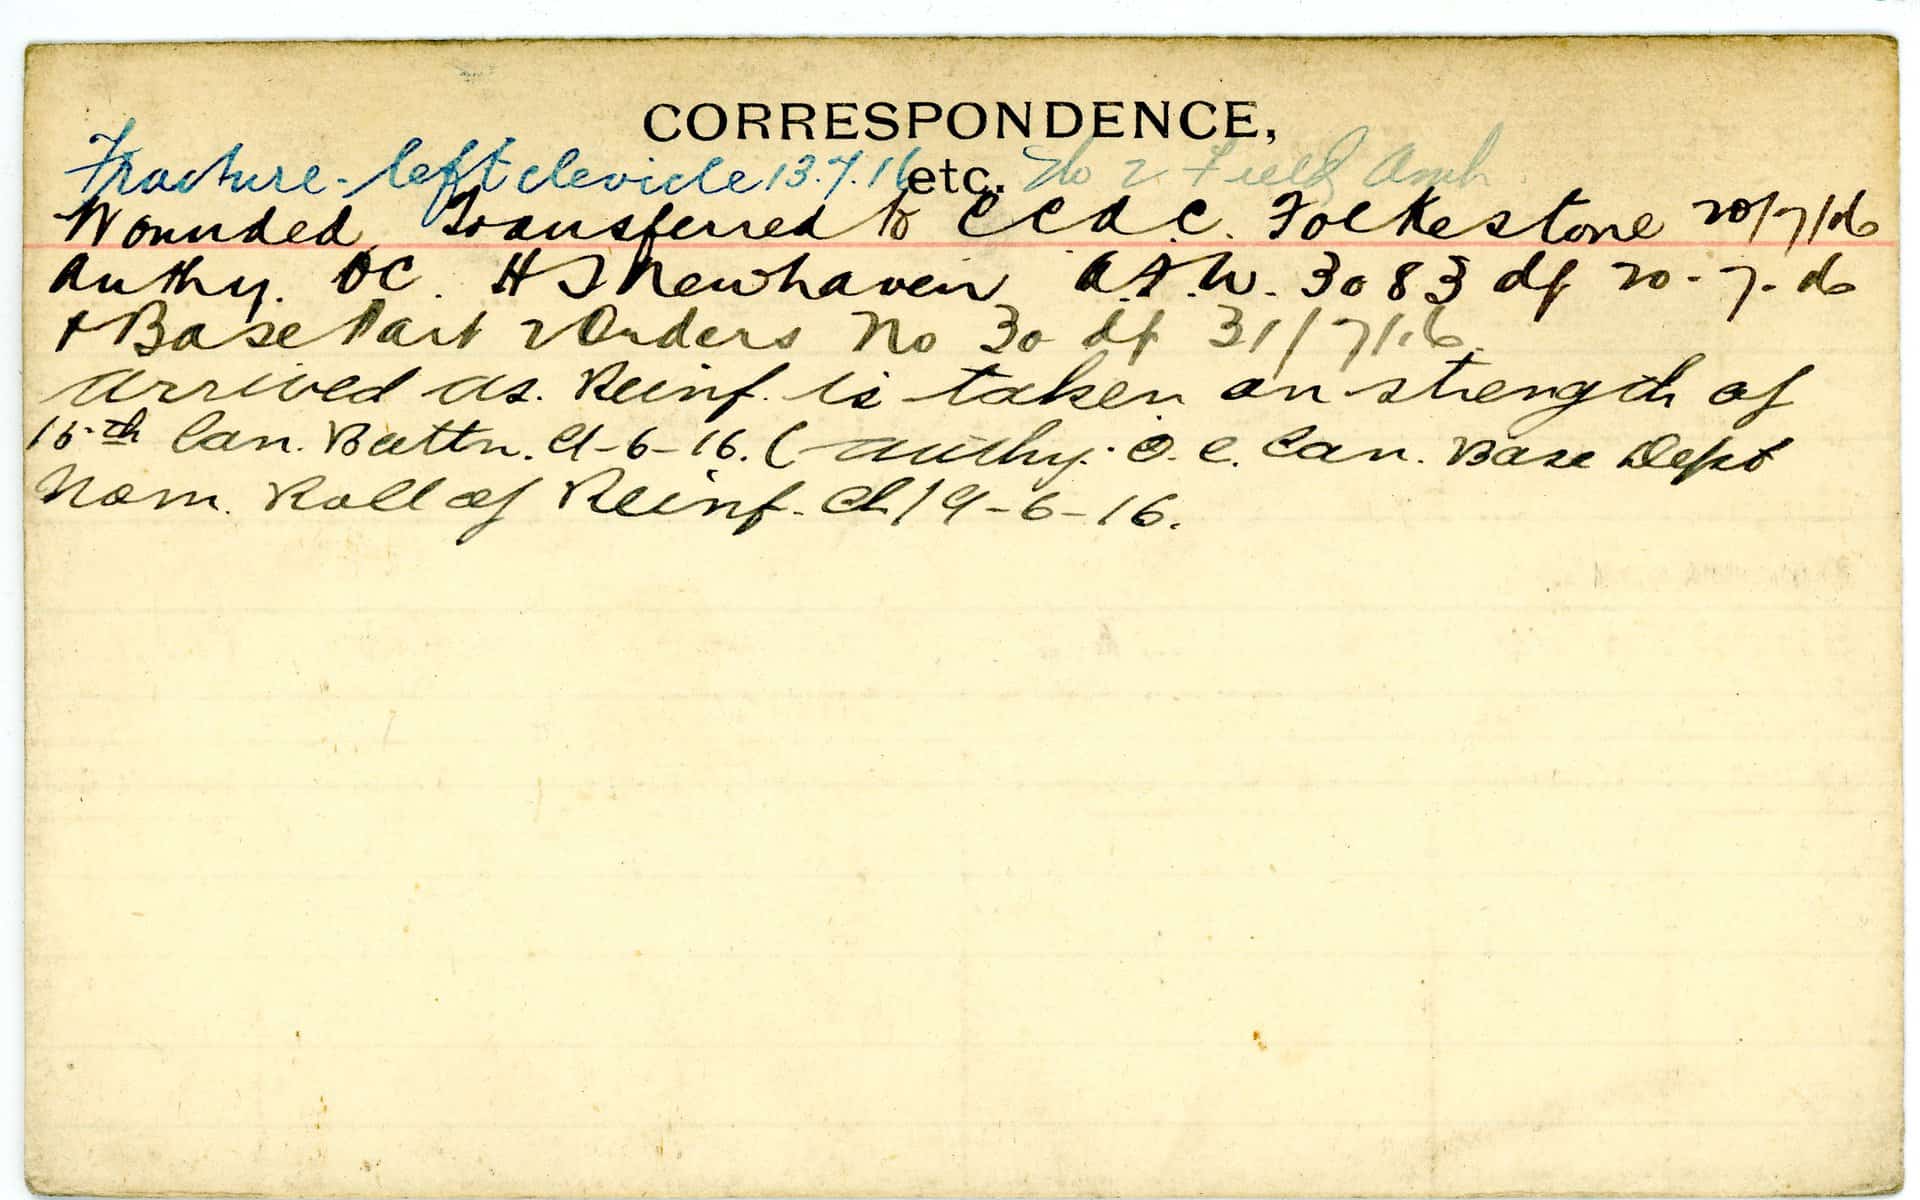 CORRESPONDENCE,
etc.
Fracture - left clevicle 13.7.16 No 2 Field Amb.
Wounded, Transferred to C C A C. Folkestone 20/7/16
Authy. OC. H S Newhaven A.F.W. 3083 df 20-7-16
+ Base Part 2 Orders No 30 df 31/7/16
Arrived as. Reinf. is taken on strength of
15th Can. Battn. 9-6-16. (Authy. O.C. Can. Base Dept
Nom. Roll of Reinf. d/9-6-16.